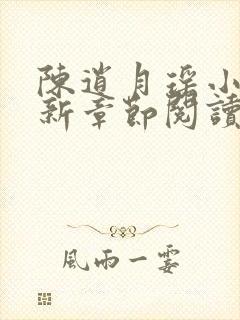 陳道月瑤小
新章節閱讀
風雨一霎